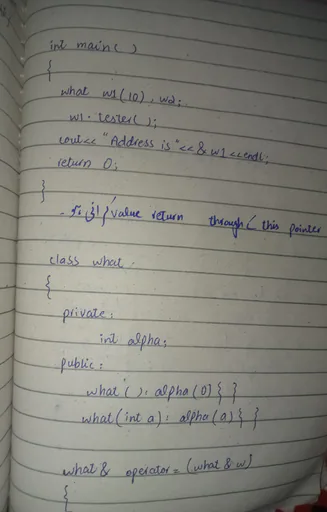 int main( )
{
what w1(10), w2;
w1. tester( );
cout<< "Address is "<< & w1 <<endl;
return 0;
}
value return through this pointer
class what
{
private:
int alpha;
public:
what ( ): alpha (0) { }
what (int a): alpha (a) { }
what & operator = (what & w)
{